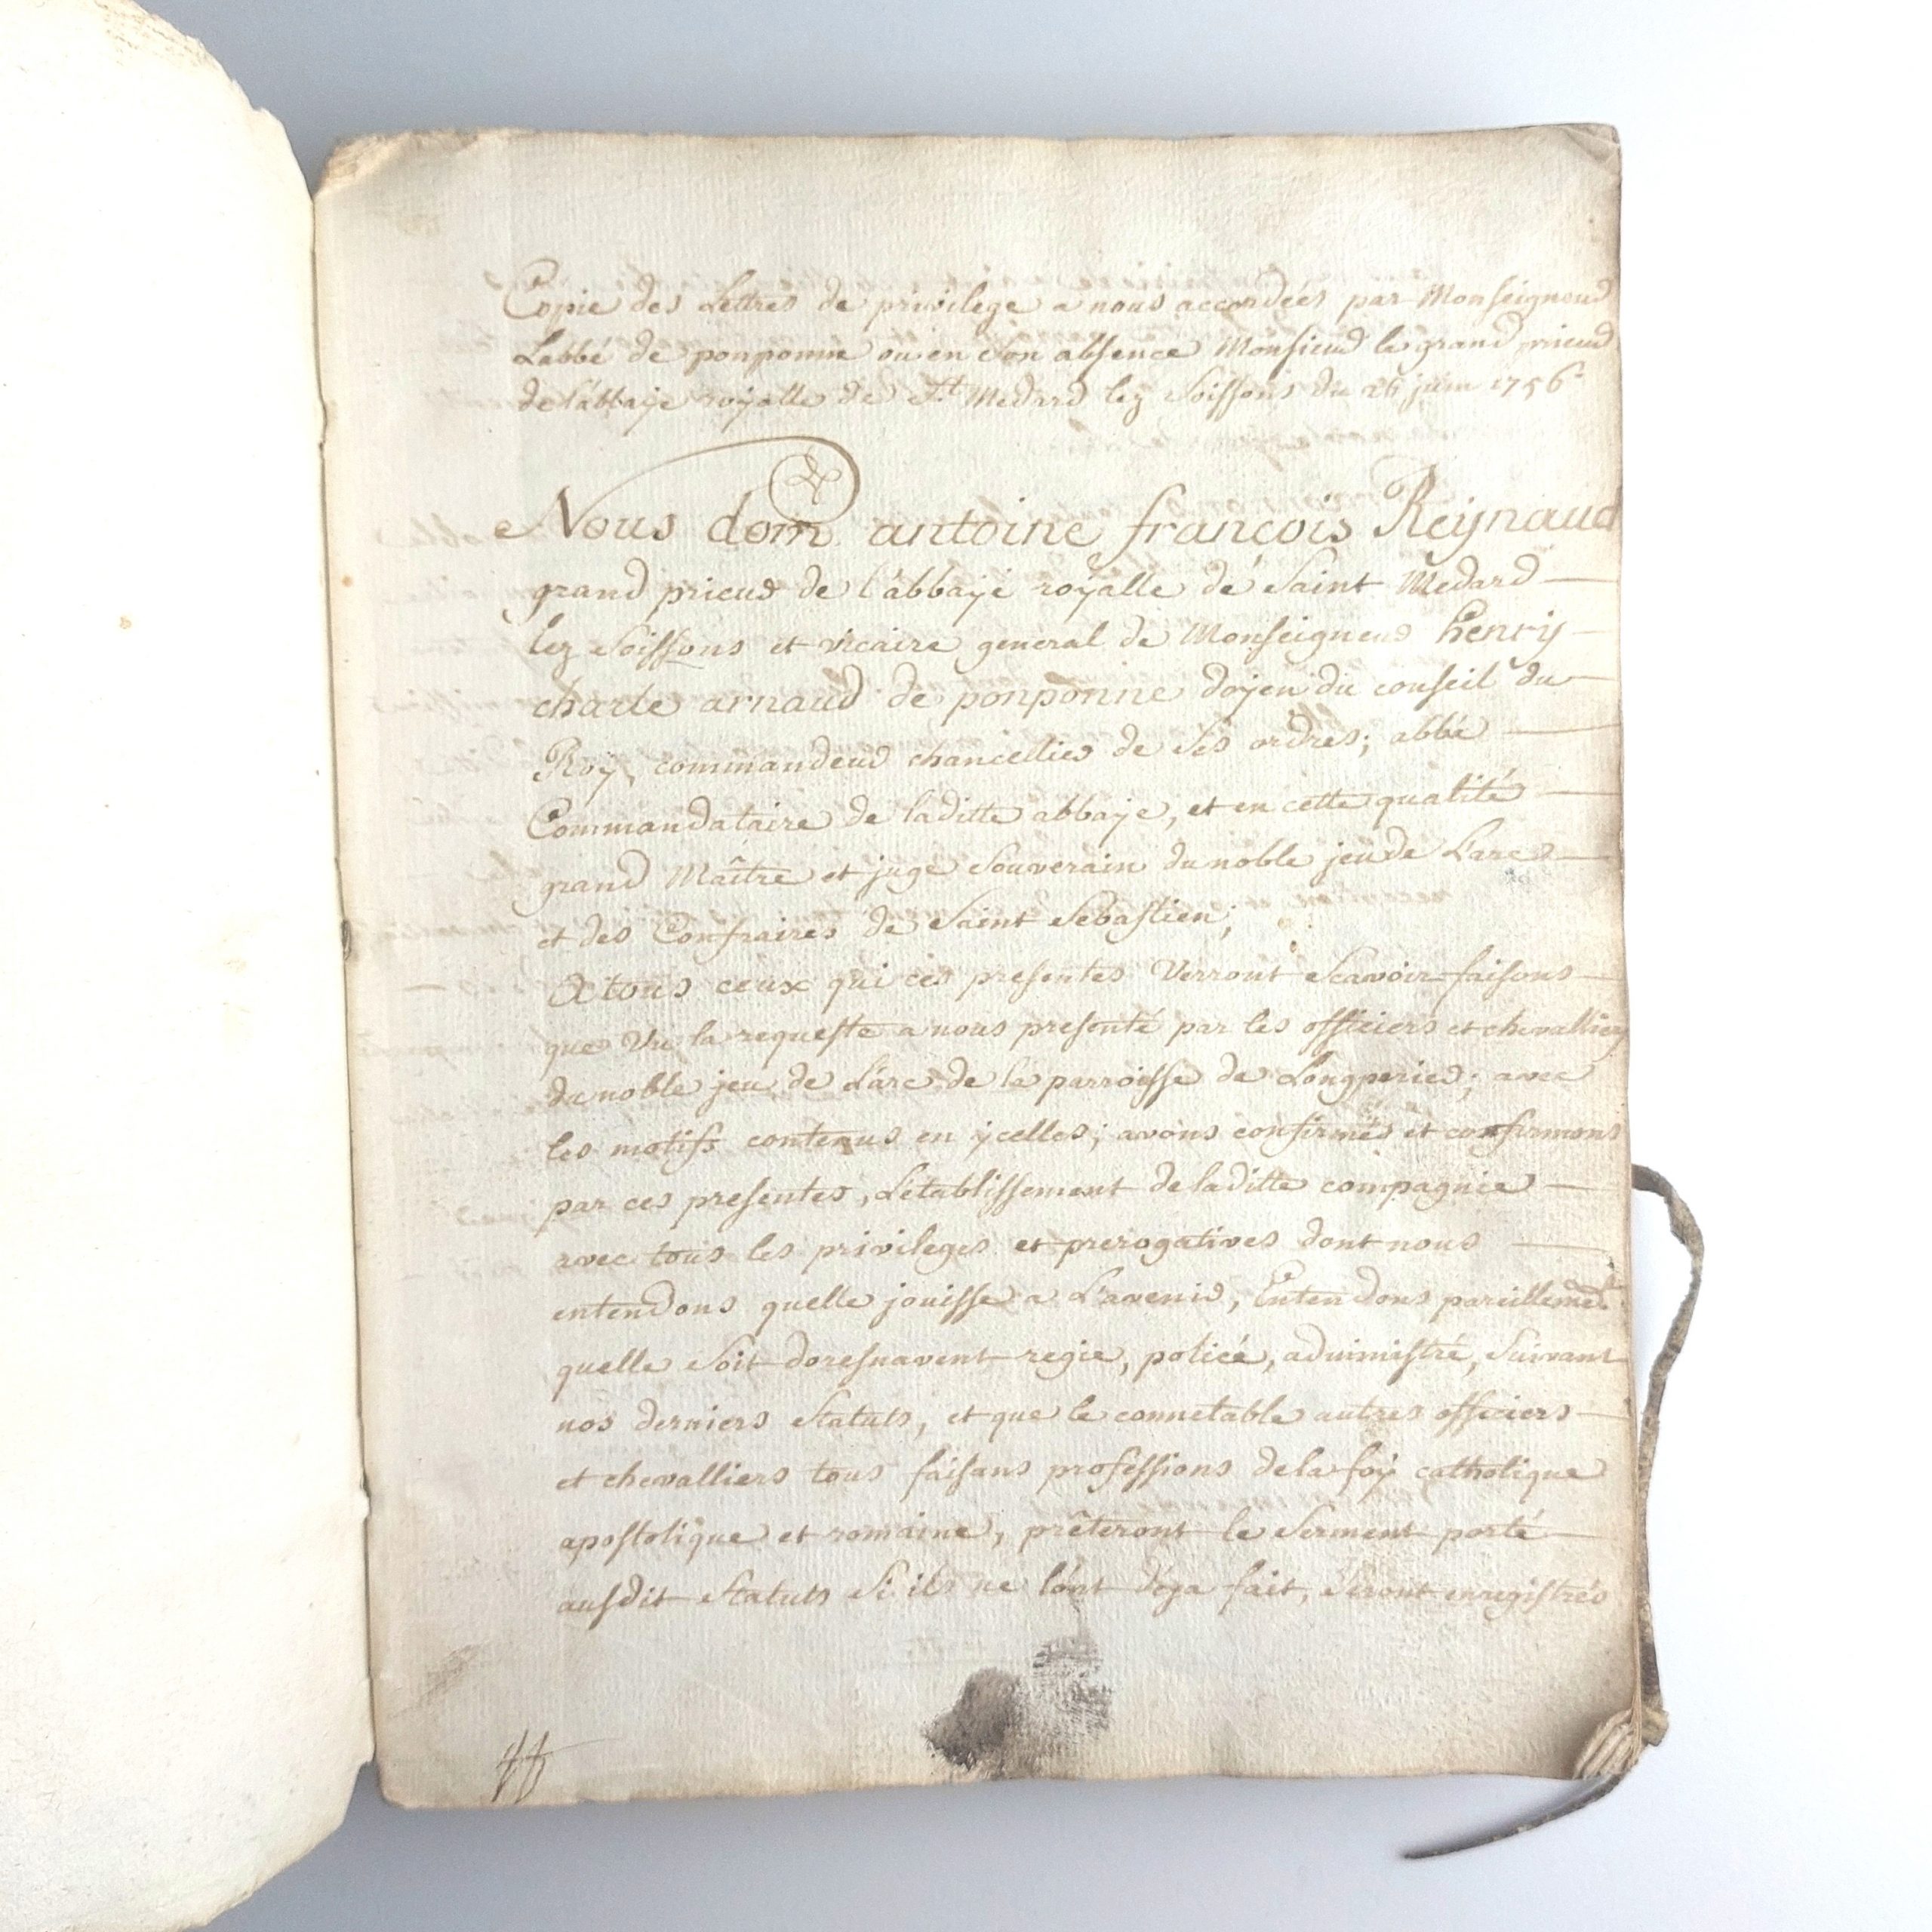 Copie des Lettres de privilege a nous accordées par Monseigneur
Labbé de ponponne ou en son absence Monsieur le grand prieur
de l'abbaye royalle de St. Medard lez Soissons du 26 juin 1756
Nous dom antoine françois Reynaud
grand prieur de l'abbaye royalle de Saint Medard
lez Soissons et vicaire general de Monseigneur henry
charle arnaud de ponponne doyen du conseil du
Roy, commandeur chancellier de ses ordres; abbé
Commandataire de laditte abbaye, et en cette qualité
grand Maître et juge Souverain du noble jeu de L'arc
et des Confraires de Saint Sebastien;
A tous ceux qui ces presentes Verront Scavoir faisons
que Vu la requeste a nous presenté par les officiers et chevalliers
du noble jeu de L'arc de la parroisse de Longperier; avec
les motifs contenus en ycelles; avons confirmés et confirmons
par ces presentes, L'etablissement de laditte compagnie
avec tous les privileges et prerogatives dont nous
entendons quelle jouisse a L'avenir, Entendons pareillemet
quelle soit doresnavent regie, policé, administré, Suivant
nos derniers Statuts, et que le connetable autres officiers
et chevalliers tous faisans professions de la foy catholique
apostolique et romaine, prêteront le Serment porté
ausdit Statuts Si ils ne lónt deja fait, Seront enregistrés